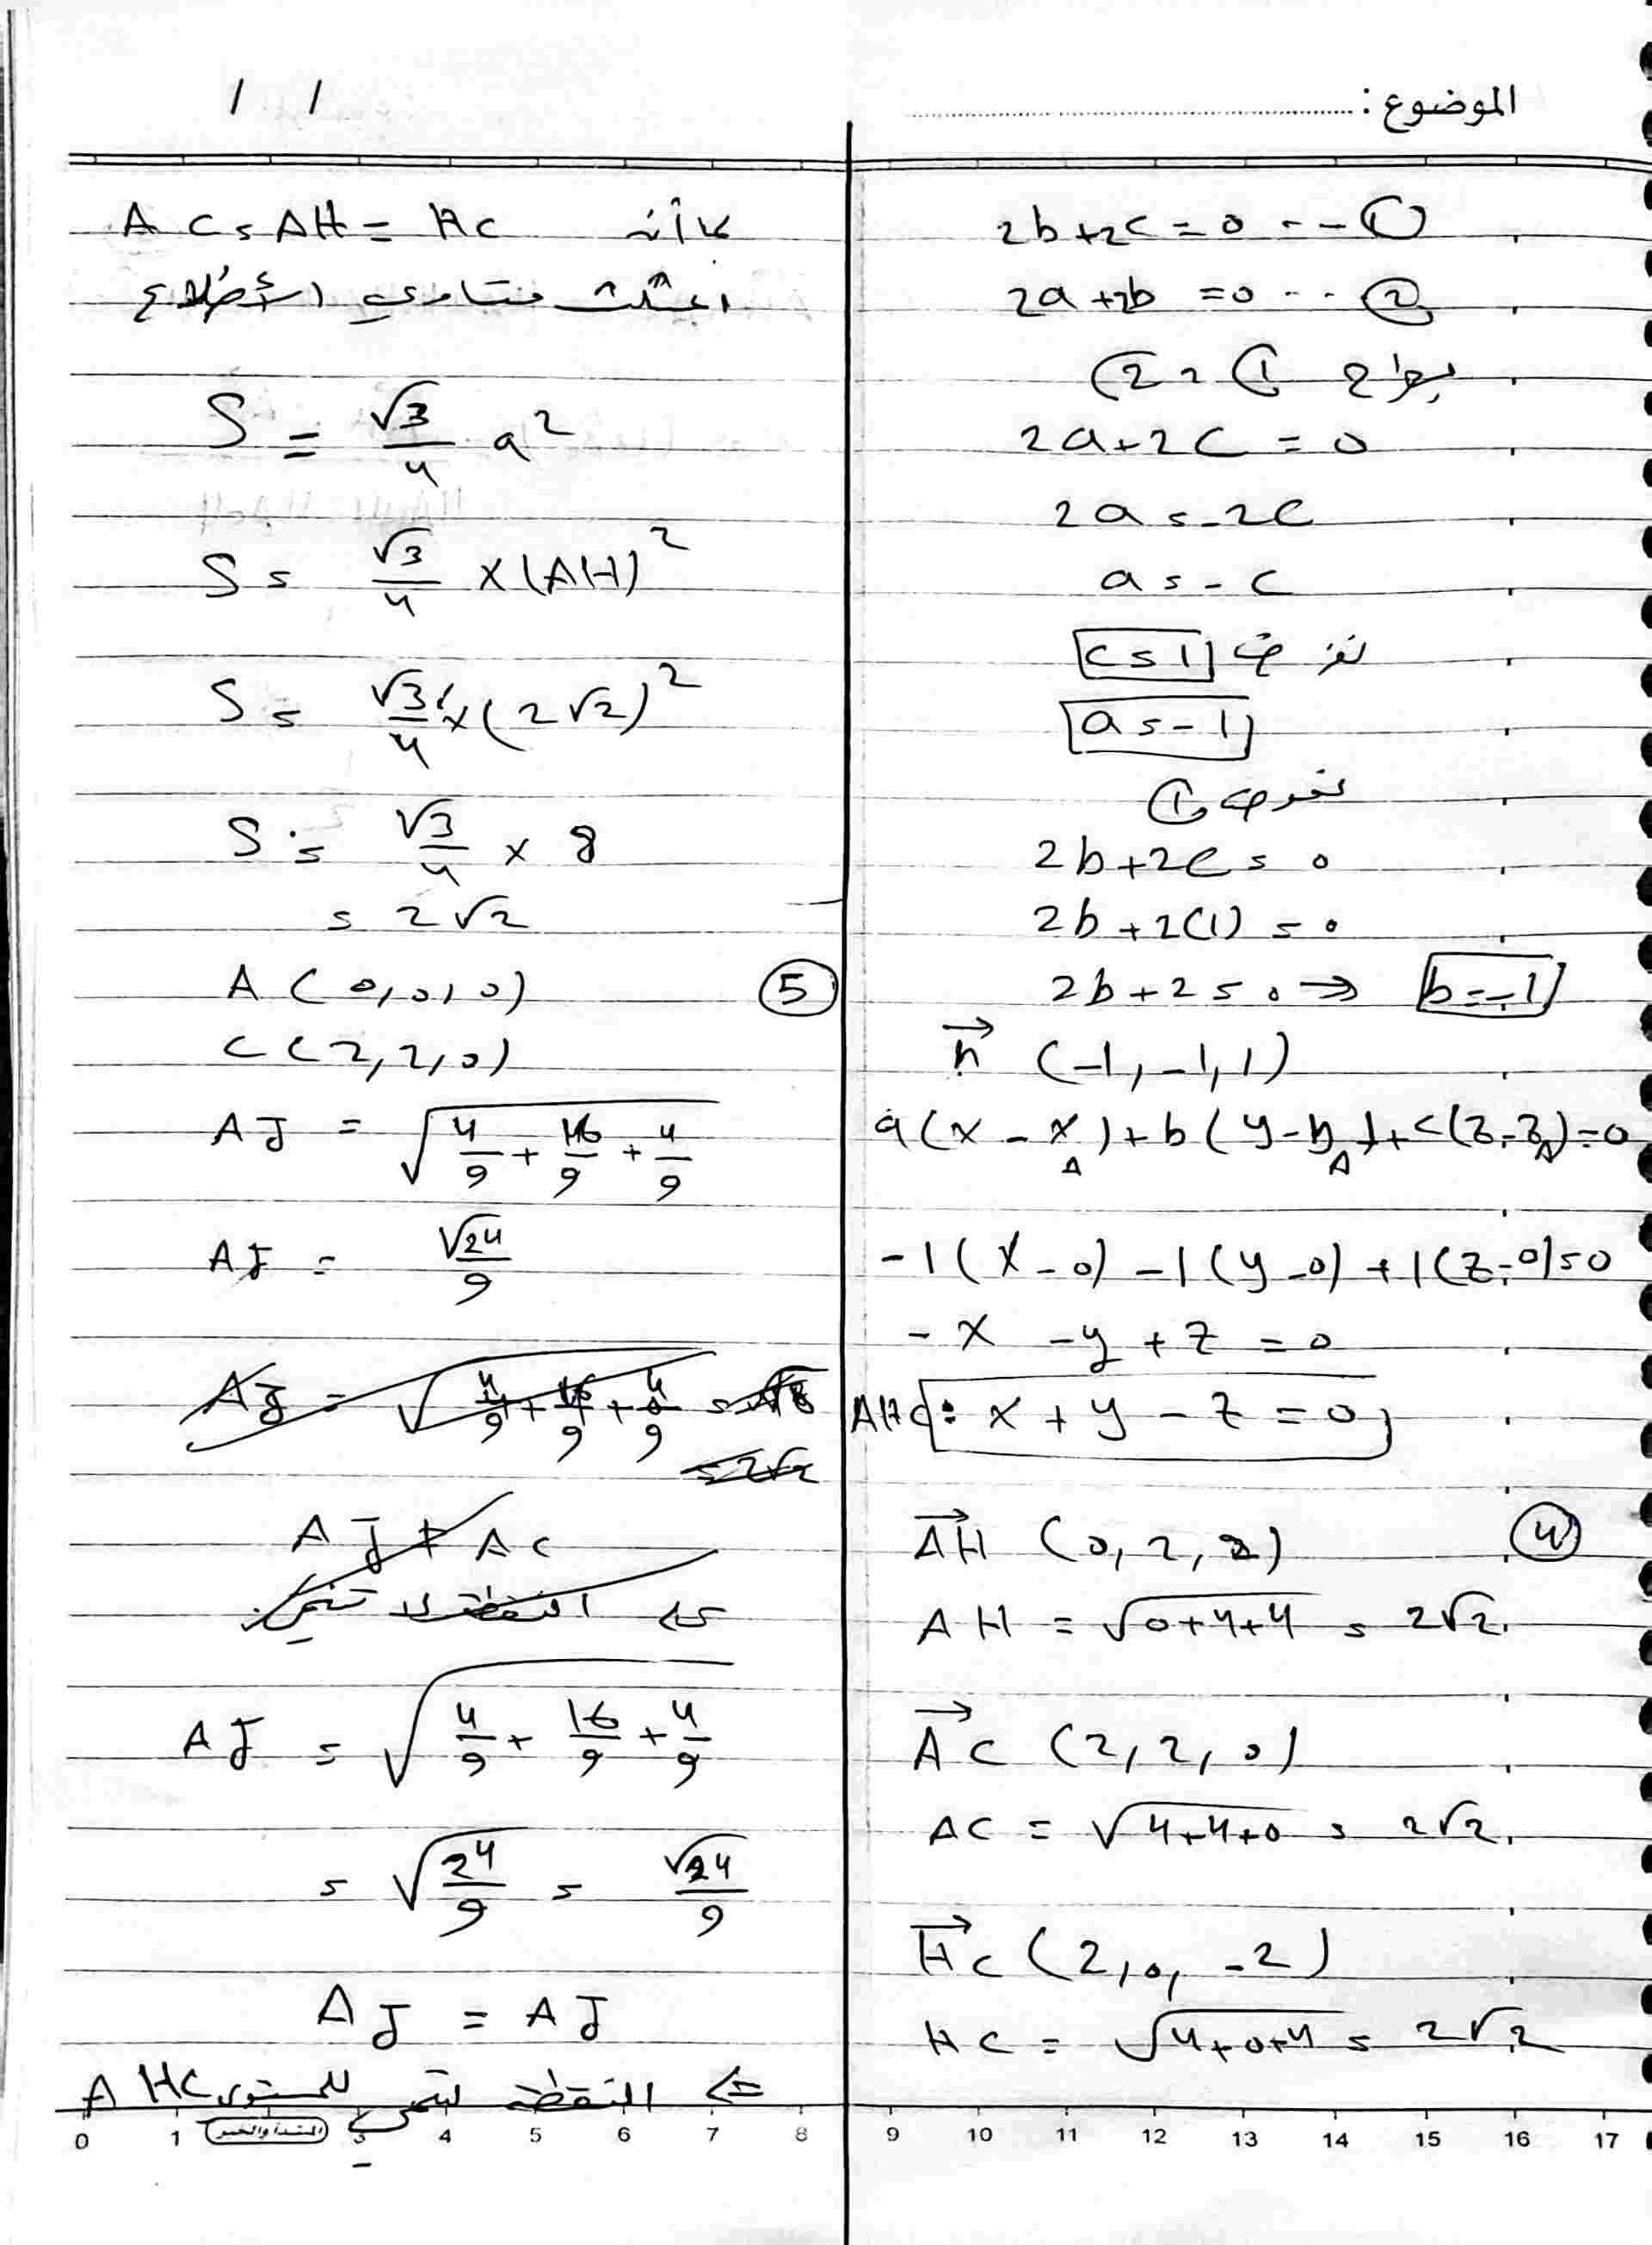 الموضوع :
/ /
2b+2c = 0 --- ①
2a+2b = 0 -- ②
بطرح ① و ②
2a+2c = 0
2a = -2c
a = -c
نفرض c = 1
a = -1
نعوض ①
2b+2c = 0
2b+2(1) = 0
2b+2 = 0 ⇒ b = -1
n⃗ (-1, -1, 1)
a(x - x_A) + b(y - y_A) + c(z - z_A) = 0
-1(x-0) -1(y-0) +1(z-0) = 0
-x -y + z = 0
AHC: x + y - z = 0
④
AH⃗ (0, 2, 2)
AH = √(0+4+4) = 2√2
AC⃗ (2, 2, 0)
AC = √(4+4+0) = 2√2
HC⃗ (2, 0, -2)
HC = √(4+0+4) = 2√2
بما أنه AC = AH = HC
المثلث متساوي الأضلاع
S = √3/4 a²
S = √3/4 × (AH)²
S = √3/4 × (2√2)²
S = √3/4 × 8
= 2√2
⑤
A (0, 0, 0)
C (2, 2, 0)
AJ = √(4/9 + 16/9 + 4/9)
AJ = √24/9
AJ = √(4/9 + 16/9 + 4/9) = √8
= 2√2
AJ ≠ AC
⇐ النقطة لا تنتمي
AJ = √(4/9 + 16/9 + 4/9)
= √(24/9) = √24/9
AJ = AJ
⇐ النقطة تنتمي للمستوى AHC
0 1 المبتدأ والخبر 3 4 5 6 7 8 9 10 11 12 13 14 15 16 17